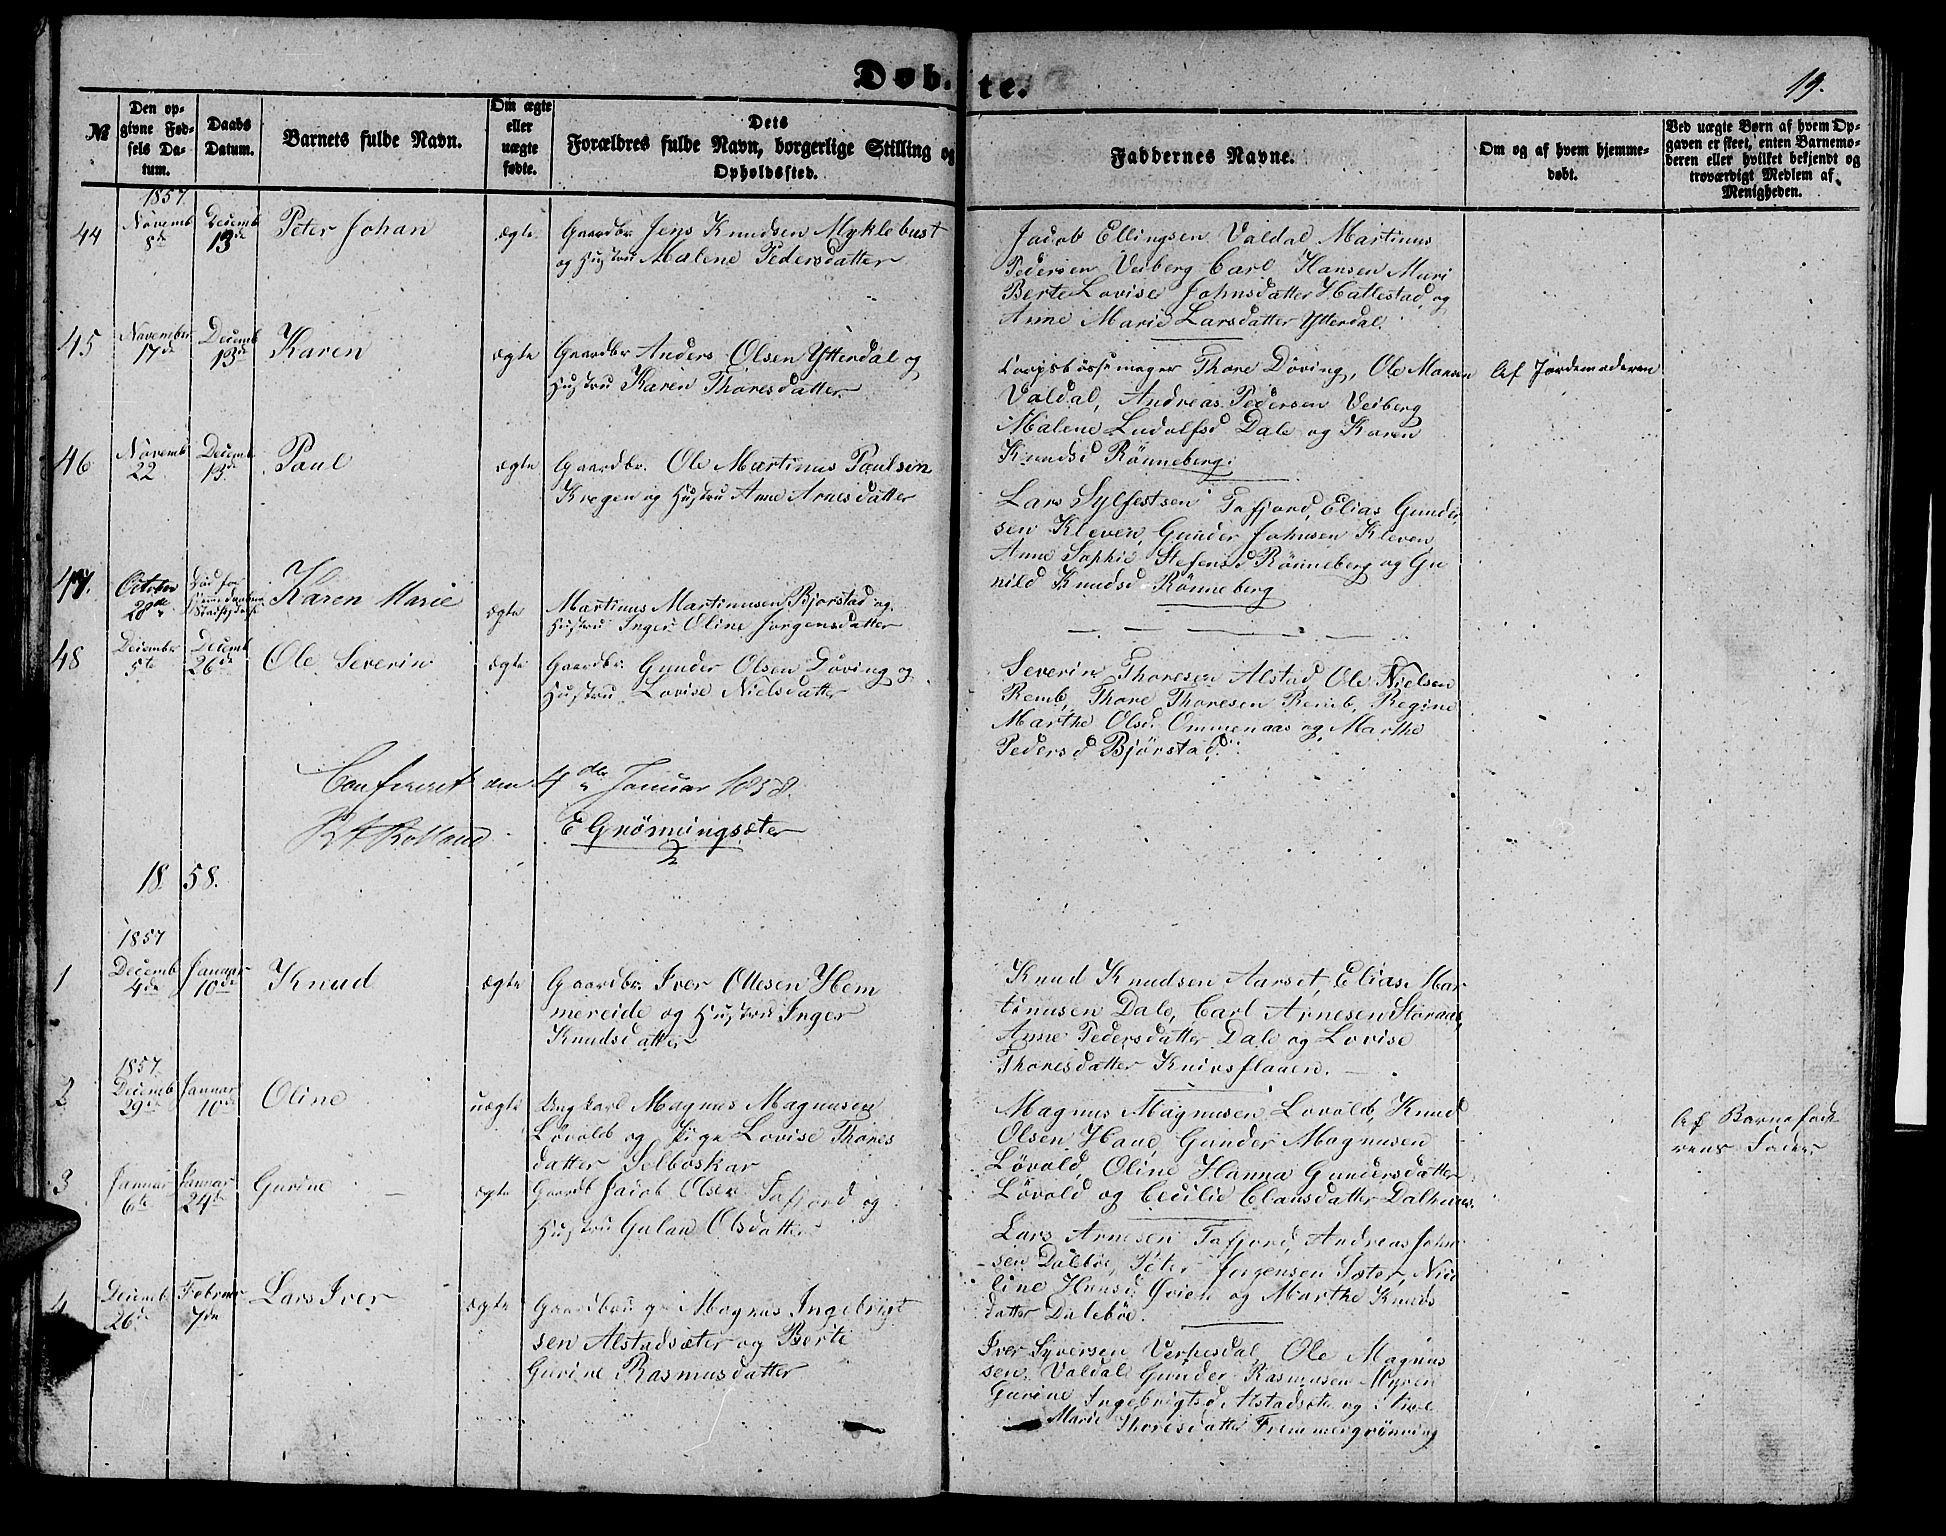 Døbte.
19.
№
Den opgivne Fødsels Datum.
Daabs Datum.
Barnets fulde Navn.
Om ægte eller uægte fødte.
Dets Forældres fulde Navn, borgerlige Stilling og Opholdssted.
Faddernes Navne.
Om og af hvem hjemmedøbt.
Ved uægte Børn af hvem Opgaven er skeet, enten Barnemoderen eller hvilket bekjendt og troværdigt Medlem af Menigheden.
1857
44 Novemb 8de Decemb 13de Peter Johan ægte Gaardbr. Jens Knudsen Myklebust
og Hustru Malene Pedersdatter
Jacob Ellingsen Valdal Martinus
Pedersen Veiberg Carl Hansen Muri
Berte Lovise Johnsdatter Hattestad og
Anne Marie Larsdatter Ytterdal.
45 November 17de Decemb 13de Karen ægte Gaardbr Anders Olsen Ytterdal og
Hustru Karen Thoresdatter
Thore Döving, Ole Monsen Af Jordemoderen
Valdal, Andreas Pedersen Veiberg
Malene Ludolfsd Dale og Karen
Knudsd Rönneberg.
46 Novemb 22 Decemb 13de Paul ægte Gaardbr. Ole Martinus Paulsen
Krogen og Hustru Anne Arnesdatter
Lars Sylfestsen Tafjord, Elias Gunder
sen Kleven, Gunder Johnsen Kleven
Anne Sophie Stefensd Rönneberg og Gu
nild Knudsd Rönneberg
47. October 28de Karen Marie ægte Martinus Martinusen Bjorstad og
Hustru Inger Oline Jorgensdatter
48 December 5te Decemb 26de Ole Severin ægte Gaardbr. Gunder Olsen Döving og
Hustru Lovise Nielsdatter
Severin Thoresen Alstad Ole Nielsen
Remb, Thore Thoresen Remb, Regine
Marthe Olsd. Ommenaas og Marthe
Pedersd Bjørstad.
Confereret den 4de Januar 1858.
E Gnörningsæter
1858.
1857
1 Decemb 4de Januar 10de Knud ægte Gaardbr. Iver Ottesen Hem
mereide og Hustru Inger
Knudsdatter
Knud Knudsen Aarset, Elias Mar
tinusen Dale, Carl Arnesen Storaas,
Anne Pedersdatter Dale og Lovise
Thoresdatter Knivsflaaen.
1857
2 Decemb 29de Januar 10de Oline uægte Ungkarl Magnus Magnusen
Lövold og Pige Lovise Thores
datter Selboskar
Magnus Magnusen Lovold, Knud
Olsen Haue, Gunder Magnusen
Løvold, Oline Hanna Gundersdatter
Løvold og Cecilie Clausdatter Dalhuus.
Af Barnefad
rens Fader
3 Januar 6te Januar 24de Gurine ægte Gaardb Jacob Olsen Tafjord og
Hustru Gulan Olsdatter
Lars Arnesen Tafjord, Andreas John
sen Daleböe, Peter Jorgensen Sæter, Nico
line Hansd Øvien og Marthe Knuds
datter Daleböe.
4 Decemb 26de Februar 7de Lars Iver ægte Magnus Ingebrigt
sen Alstadsæter og Berte
Gurine Rasmusdatter
Iver Syversen Verpesdal, Ole Magnus
sen Valdal Gunder Rasmusen Myren
Gurine Ingebrigtsd Alstadsæter og
Marie Thoresdatter Fremmergrönning